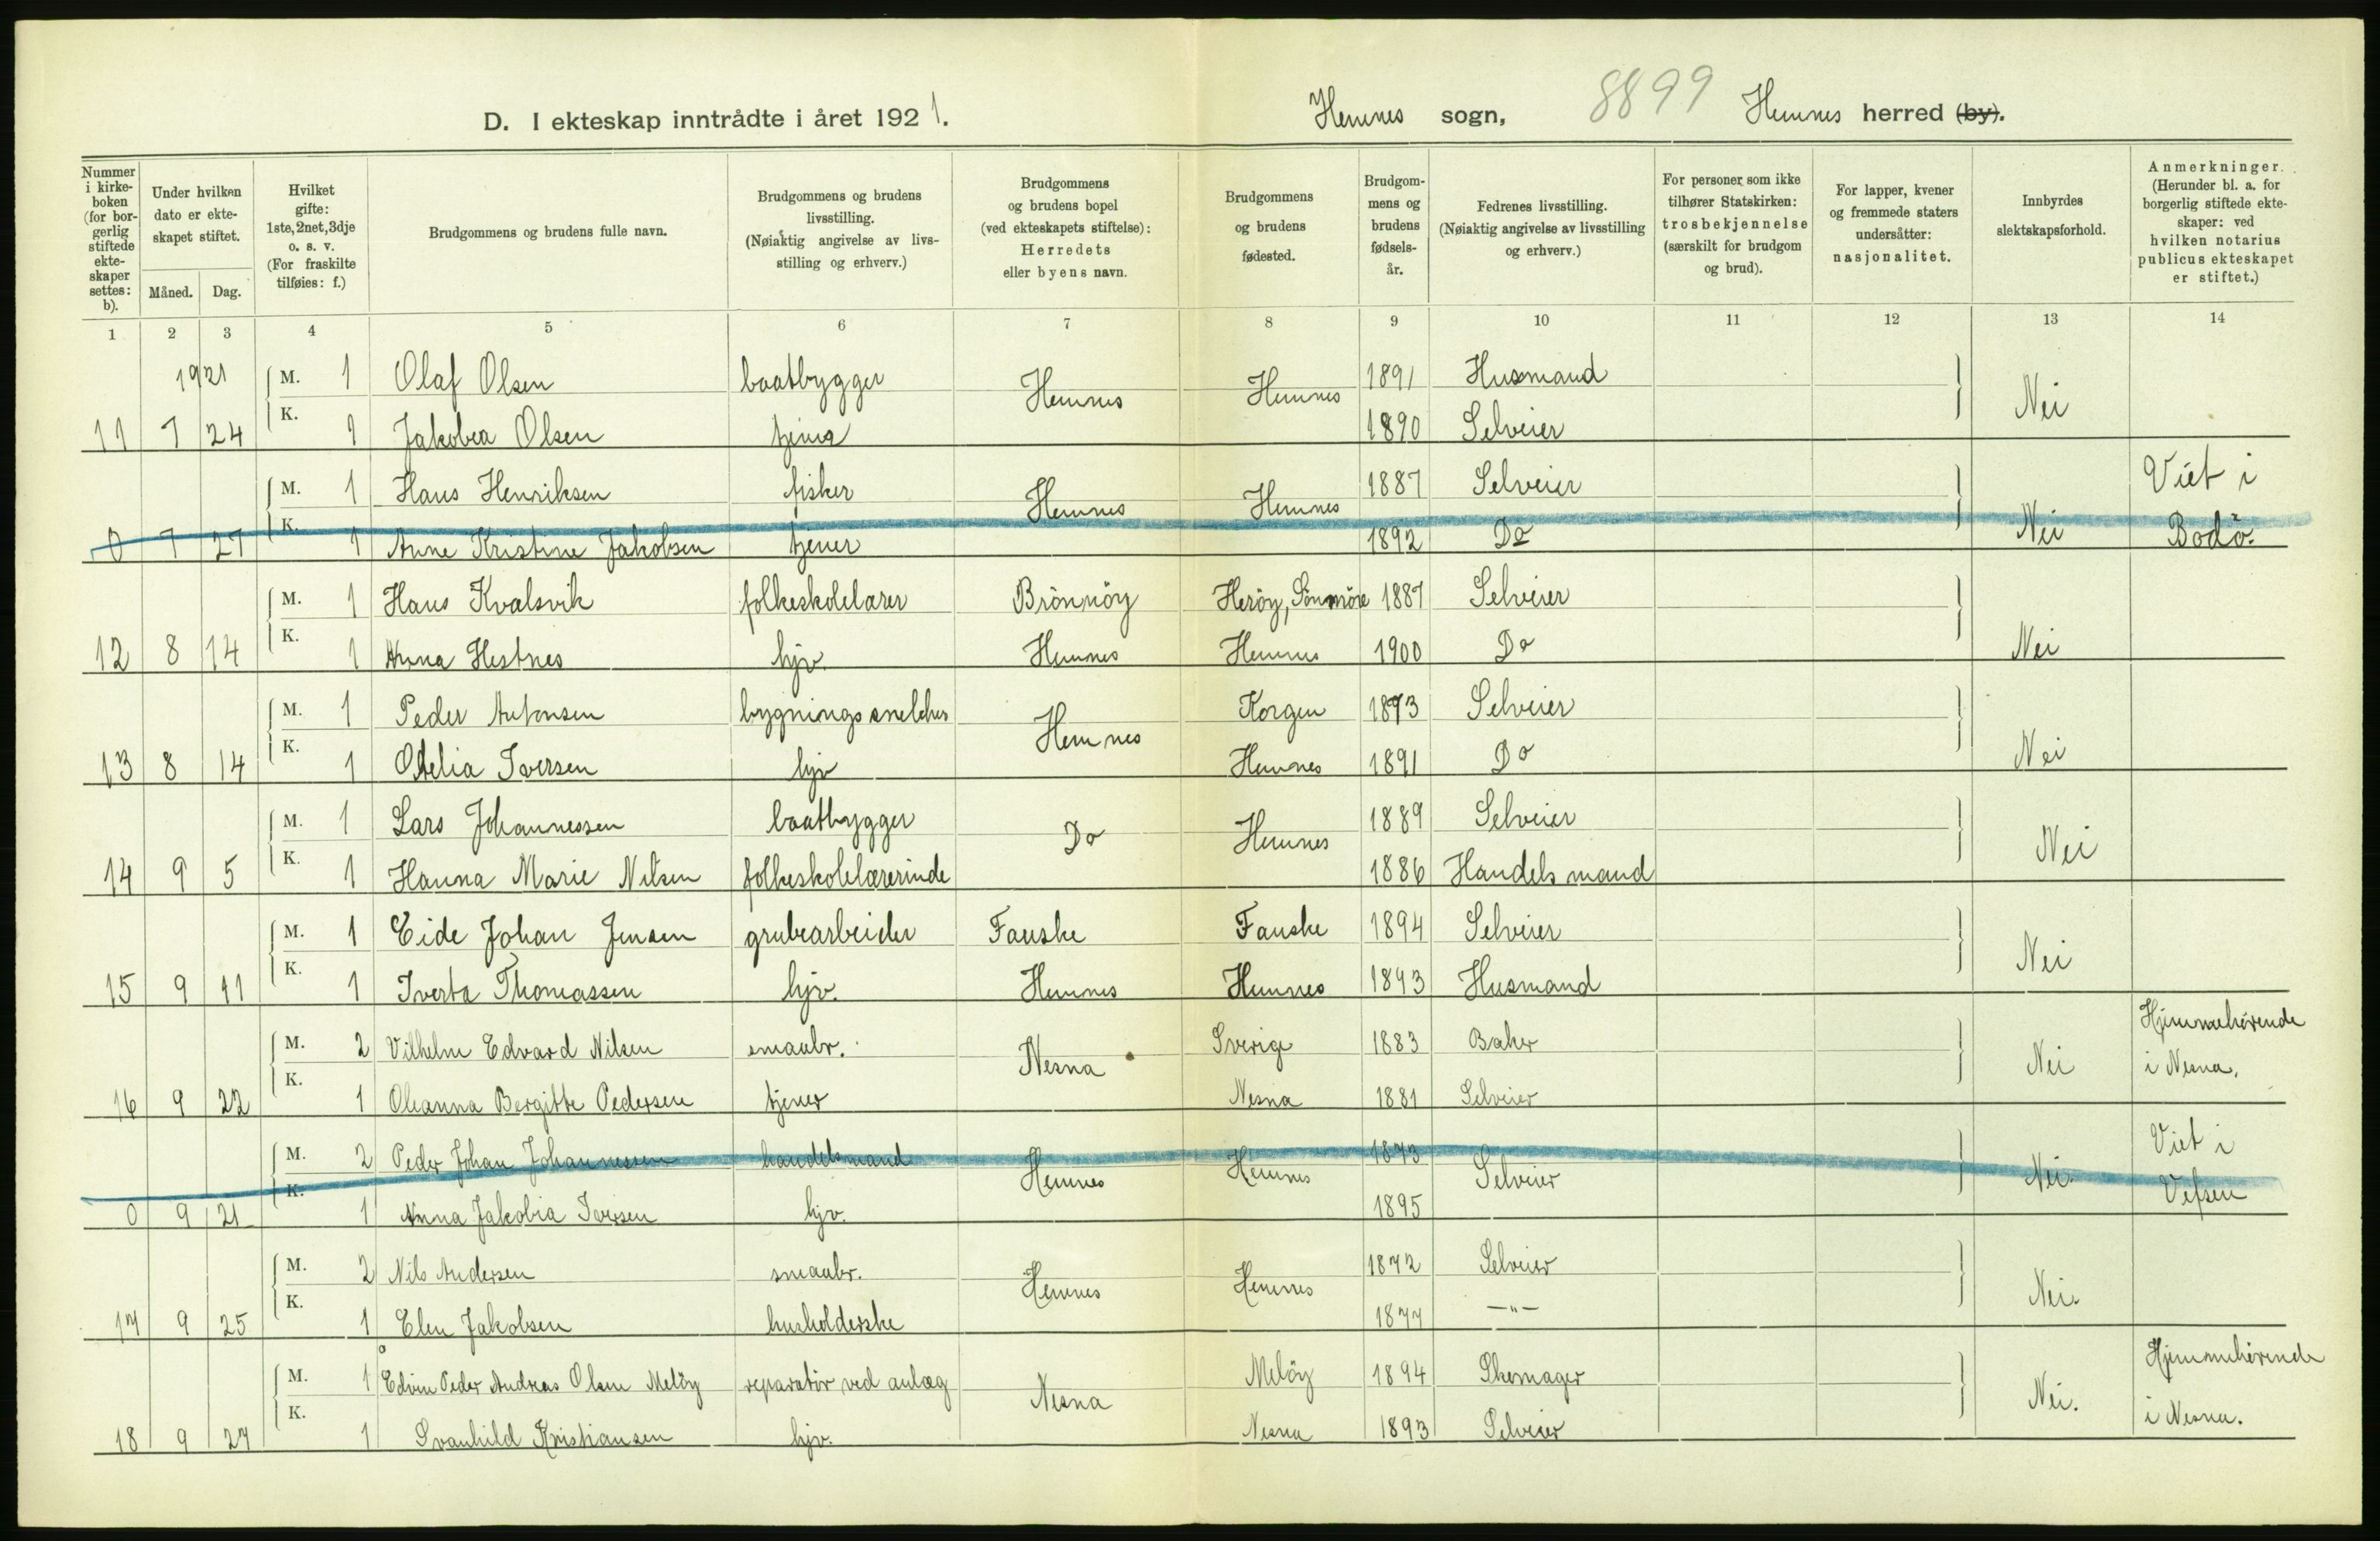 D. I ekteskap inntrådte i året 1921.
Hemnes sogn, 8899 Hemnes herred (by).
Nummer i kirkeboken (for borgerlig stiftede ekteskaper settes: b).
Under hvilken dato er ekteskapet stiftet.
Måned. Dag.
Hvilket gifte: 1ste, 2net, 3dje o. s. v. (For fraskilte tilføies: f.)
Brudgommens og brudens fulle navn.
Brudgommens og brudens livsstilling. (Nøiaktig angivelse av livsstilling og erhverv.)
Brudgommens og brudens bopel (ved ekteskapets stiftelse): Herredets eller byens navn.
Brudgommens og brudens fødested.
Brudgommens og brudens fødselsår.
Fedrenes livsstilling. (Nøiaktig angivelse av livsstilling og erhverv.)
For personer som ikke tilhører Statskirken: trosbekjennelse (særskilt for brudgom og brud).
For lapper, kvener og fremmede staters undersåtter: nasjonalitet.
Innbyrdes slektskapsforhold.
Anmerkninger. (Herunder bl. a. for borgerlig stiftede ekteskaper: ved hvilken notarius publicus ekteskapet er stiftet.)
1 2 3 4 5 6 7 8 9 10 11 12 13 14
1921 M. 1 Olaf Olsen baatbygger Hemnes Hemnes 1891 Husmand Nei
11 7 24 K. 1 Jakobea Olsen tjener 1890 Selveier
M. 1 Hans Henriksen fisker Hemnes Hemnes 1887 Selveier Nei Viet i
0 7 27 K. 1 Anne Kristine Jakobsen tjener 1892 Do Bodö.
M. 1 Hans Kvalsvik folkeskolelærer Brönnöy Heröy, Sönmöre 1887 Selveier
12 8 14 K. 1 Anna Hestnes hjv. Hemnes Hemnes 1900 Do Nei
M. 1 Peder Antonsen bygningssnekker Hemnes Korgen 1893 Selveier
13 8 14 K. 1 Odelia Iversen hjv Hemnes 1891 Do Nei
M. 1 Lars Johannessen baatbygger Do Hemnes 1889 Selveier Nei
14 9 5 K. 1 Hanna Marie Nilsen folkeskolelærerinde 1886 Handelsmand
M. 1 Eide Johan Jensen grubearbeider Fauske Fauske 1894 Selveier
15 9 11 K. 1 Iverta Thomassen hjv. Hemnes Hemnes 1893 Husmand Nei
M. 2 Vilhelm Edvard Nilsen smaabr. Nesna Sverige 1883 Baker Nei Hjemmehörende
16 9 22 K. 1 Oleanna Bergitte Pedersen tjener Nesna 1881 Selveier i Nesna.
M. 2 Peder Johan Johannessen handelsmand Hemnes Hemnes 1873 Selveier Nei. Viet i
0 9 21 K. 1 Anna Jakobia Iversen hjv. 1895 Vefsen
M. 2 Nils Andersen smaabr. Hemnes Hemnes 1872 Selveier Nei.
17 9 25 K. 1 Elen Jakobsen husholderske 1877 —"—
M. 1 Edvin Peder Andreas Olsen Melöy reparatör ved anlæg Nesna Melöy 1894 Skomager Nei. Hjemmehörende
18 9 27 K. 1 Svanhild Kristiansen hjv. Nesna 1893 Selveier i Nesna.